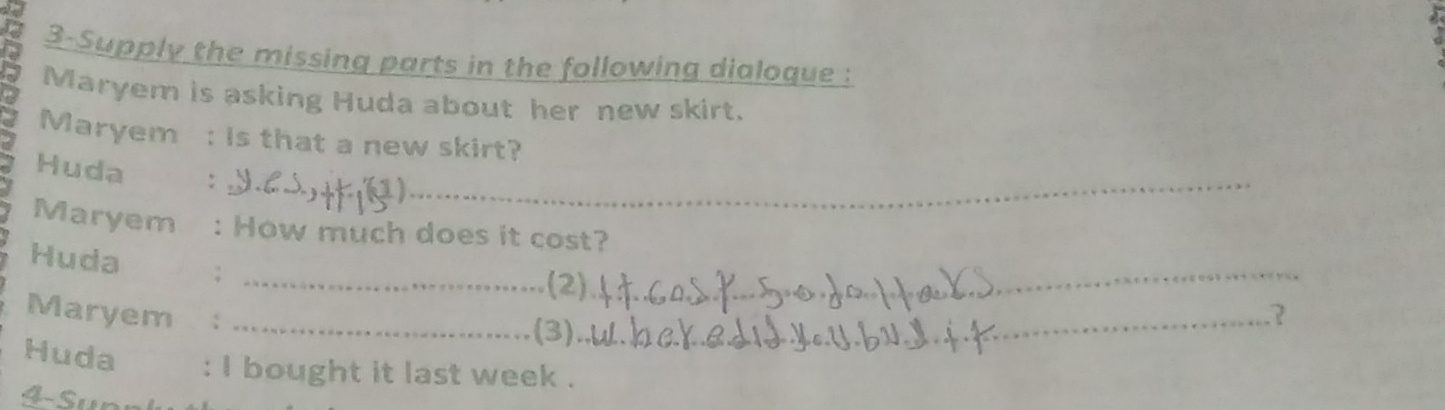 3-Supply the missing parts in the following dialogue :
Maryem is asking Huda about her new skirt.
Maryem : Is that a new skirt?
Huda : yes, it is (1)..............................
Maryem : How much does it cost?
Huda : ..............................(2) it cost 50 dollars..............................
Maryem : ..............................(3) where did you buy it..............................?
Huda : I bought it last week .